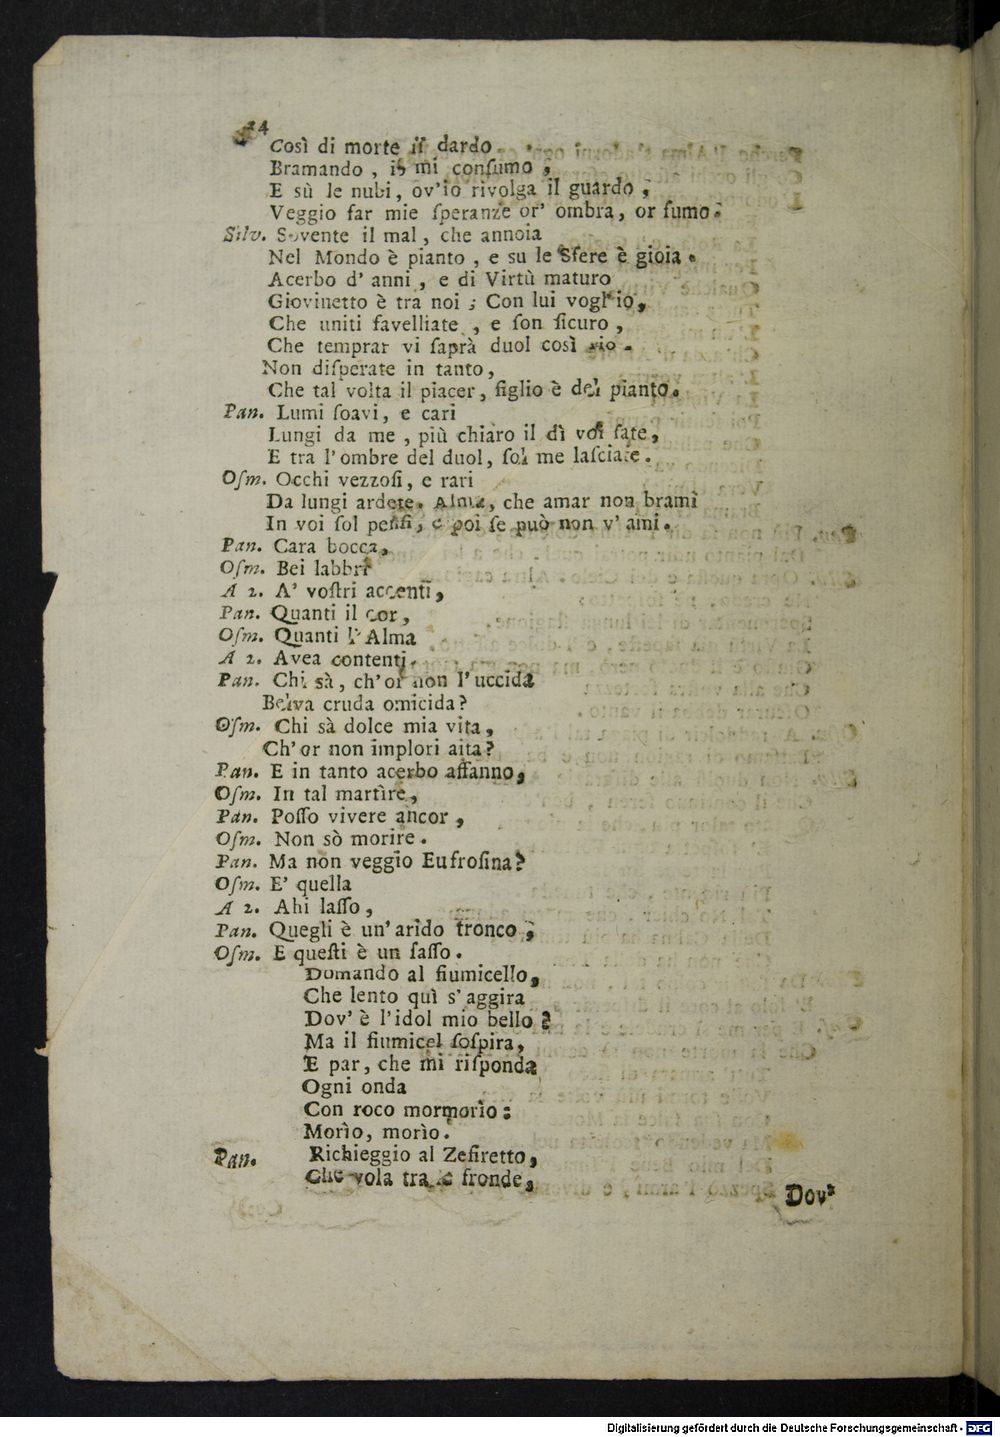 24
Così di morte il dardo
Bramando, io mi conſumo,
E sù le nubi, ov'io rivolga il guardo,
Veggio far mie ſperanze or' ombra, or fumo.
Silv. Sovente il mal, che annoia
Nel Mondo è pianto, e su le Sfere è gioia.
Acerbo d' anni, e di Virtù maturo
Giovinetto è tra noi; Con lui vogl'io,
Che uniti favelliate, e ſon ſicuro,
Che temprar vi ſaprà duol così rio.
Non diſperate in tanto,
Che tal volta il piacer, figlio è del pianto.
Pan. Lumi ſoavi, e cari
Lungi da me, più chiaro il dì voi fate,
E tra l'ombre del duol, ſol me laſciate.
Oſm. Occhi vezzoſi, e rari
Da lungi ardete. Alma, che amar non brami
In voi ſol penſi, e poi ſe può non v' ami.
Pan. Cara bocca,
Oſm. Bei labbri
A 2. A' voſtri accenti,
Pan. Quanti il cor,
Oſm. Quanti l'Alma
A 2. Avea contenti.
Pan. Chi sà, ch'or non l'uccida
Belva cruda omicida?
Oſm. Chi sà dolce mia vita,
Ch'or non implori aita?
Pan. E in tanto acerbo affanno,
Oſm. In tal martìre,
Pan. Poſſo vivere ancor,
Oſm. Non sò morire.
Pan. Ma non veggio Eufroſina?
Oſm. E' quella
A 2. Ahi laſſo,
Pan. Quegli è un' arido tronco;
Oſm. E queſti è un ſaſſo.
Domando al fiumicello,
Che lento quì s'aggira
Dov' è l'idol mio bello?
Ma il fiumicel ſoſpira,
E par, che mi riſponda
Ogni onda
Con roco mormorìo:
Morìo, morìo.
Pan. Richieggio al Zefiretto,
Che vola tra le fronde,
Dov'
Digitalisierung gefördert durch die Deutsche Forschungsgemeinschaft - DFG